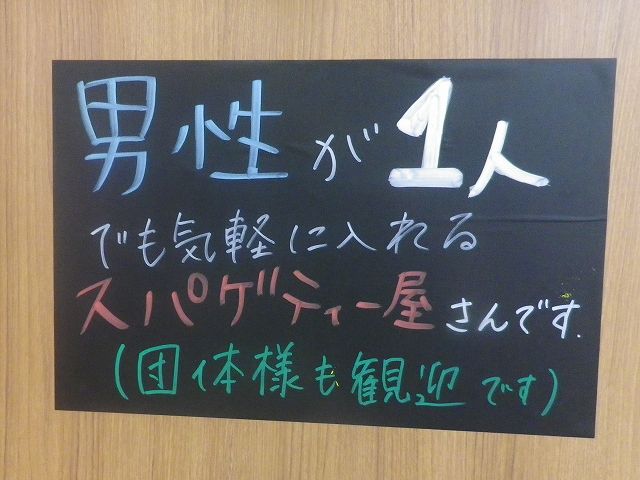 男性が1人
でも気軽に入れる
スパゲティー屋さんです.
(団体様も観迎です)